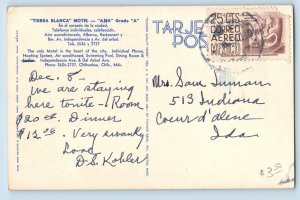 "TIERRA BLANCA" MOTEL — "AMA" Grado "A"
En el corazón de la ciudad.
Teléfono individual, Calefacción,
Aire acondicionado, Alberca, Restaurant y
Bar, Independencia y Ave. del arbol.
Tels. 2626 y 3727
The only Motel in the heart of the city, Individual Phone,
Heating System, Air conditioned, Swimming Pool, Dining Room &
Bar, Independencia Ave. & Del Arbol Ave.
Phone 2626-3727, Chihuahua, Chih., Méx.
TARJE
POS
25 CTS
CORREO
AEREO
Dec. 8 -
We are staying
here tonite - Room
$20.00. Dinner
$12.50. Very swanky
Love
D.S. Kohler
Mrs. Sam Inman
513 Indiana
Coeur d'alene
Ida
$3.00